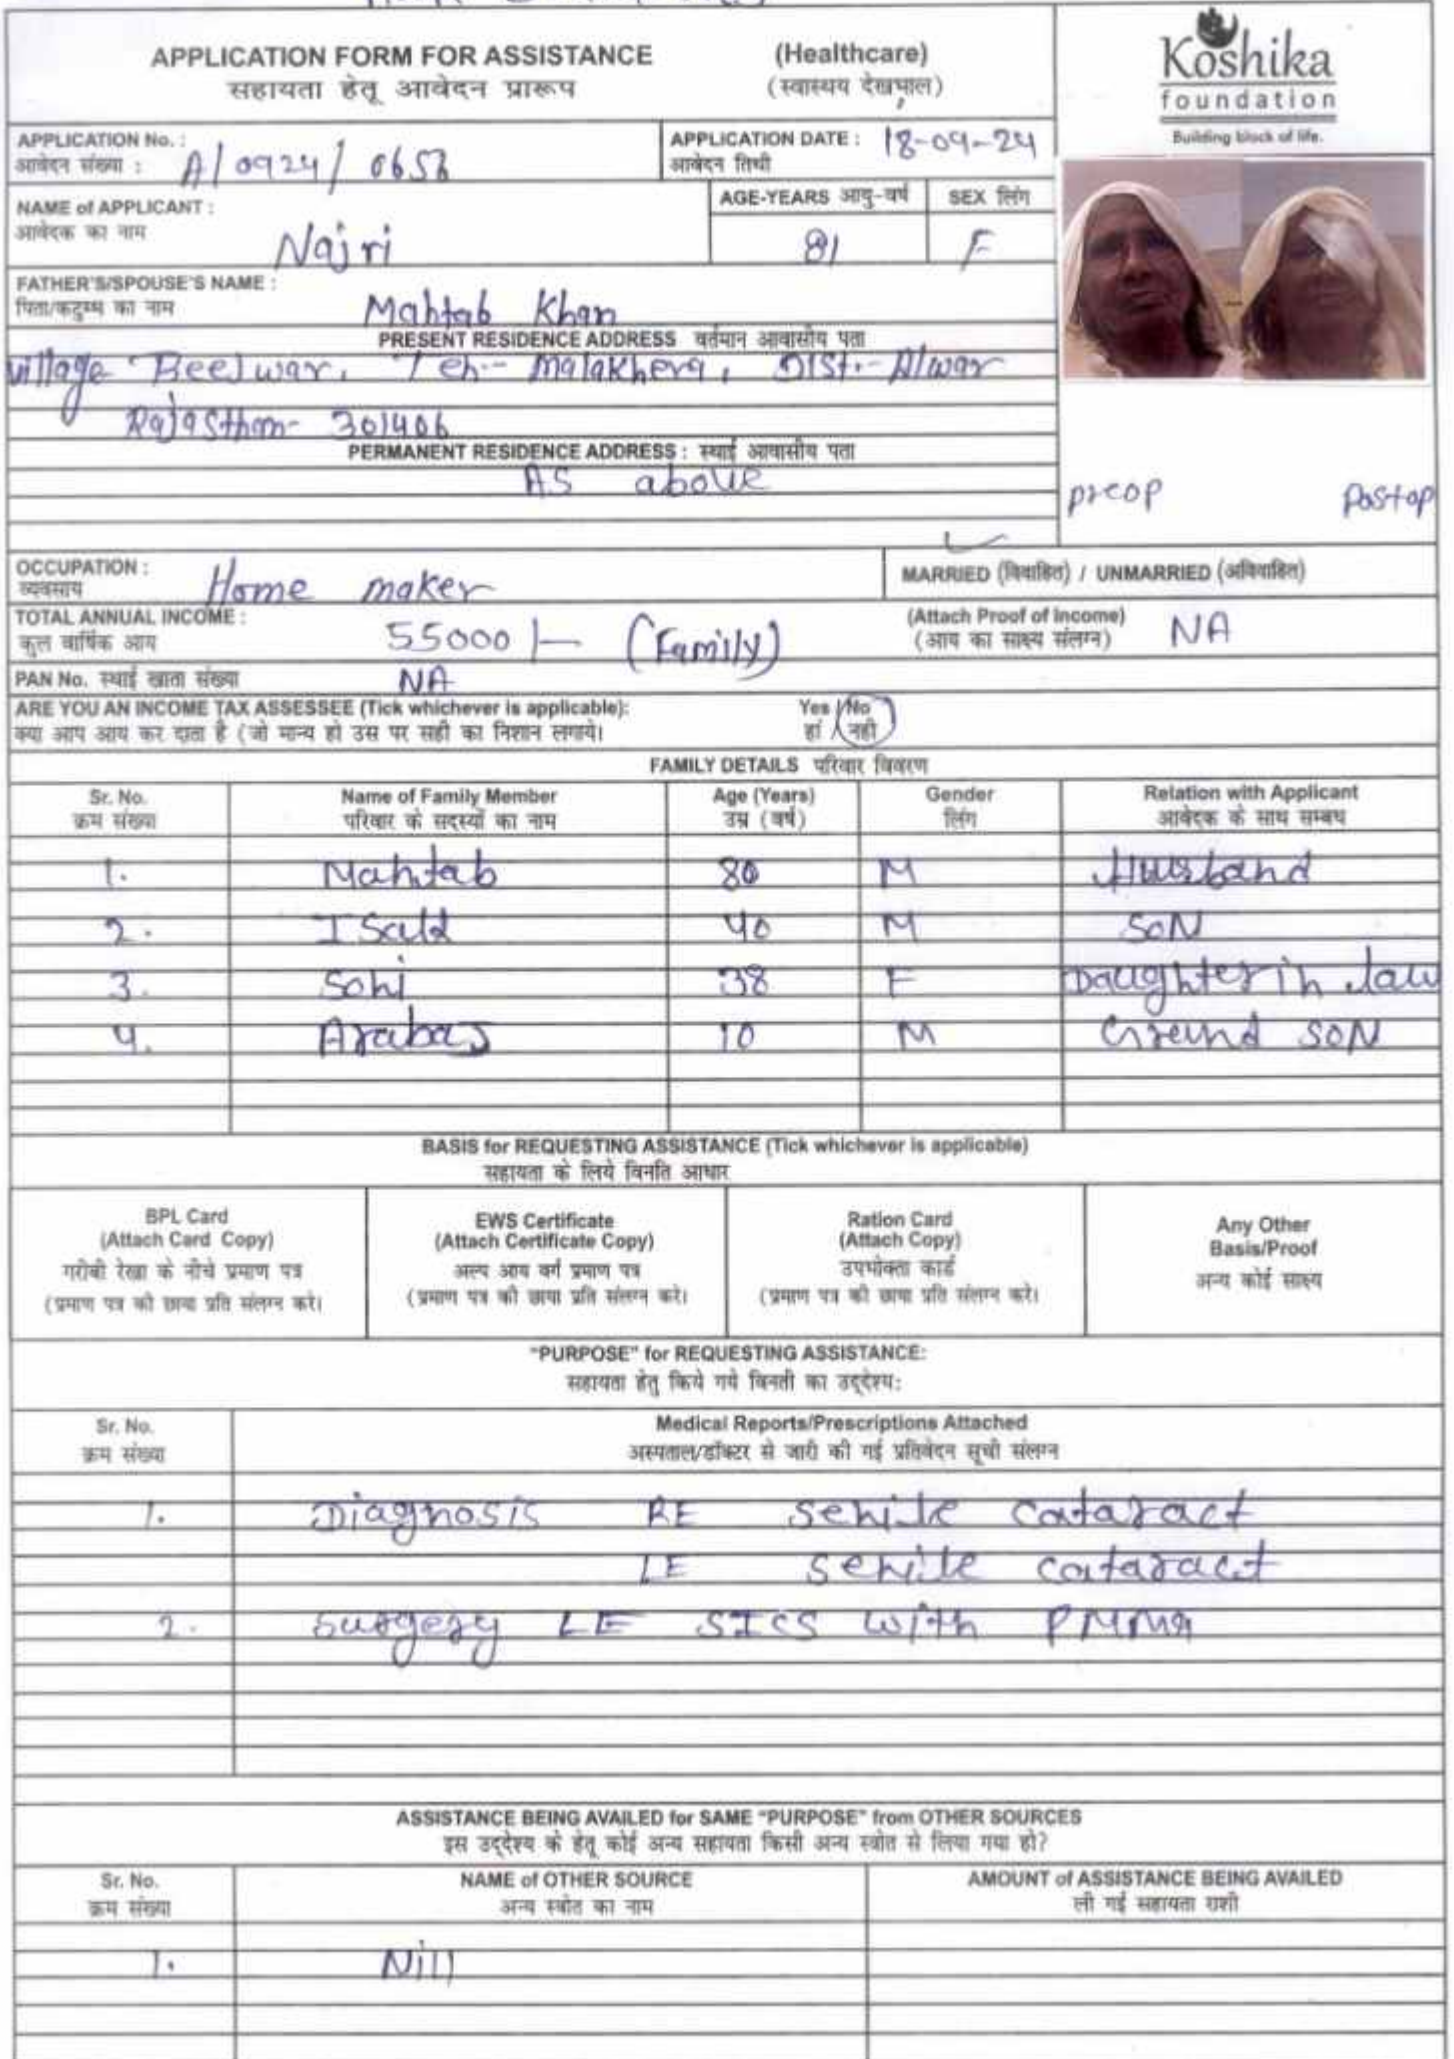 APPLICATION FORM FOR ASSISTANCE (Healthcare)
सहायता हेतू आवेदन प्रारूप (स्वास्थय देखभाल)
Koshika
foundation
Building block of life.
APPLICATION No. :
आवेदन संख्या : A/0924/
APPLICATION DATE : 18-09-24
आवेदन तिथी
NAME of APPLICANT :
आवेदक का नाम Najri
AGE-YEARS आयु-वर्ष SEX लिंग
81 F
FATHER'S/SPOUSE'S NAME :
पिता/कटुम्ब का नाम Mahtab Khan
PRESENT RESIDENCE ADDRESS वर्तमान आवासीय पता
village Beejwar, Teh.- Malakhera, Dist.- Alwar
Rajasthan- 301406
PERMANENT RESIDENCE ADDRESS : स्थाई आवासीय पता
AS above
preop Postop
OCCUPATION :
व्यवसाय Home maker
MARRIED (विवाहित) / UNMARRIED (अविवाहित)
TOTAL ANNUAL INCOME :
कुल वार्षिक आय 55000/- (Family)
(Attach Proof of Income)
(आय का साक्ष्य संलग्न) NA
PAN No. स्थाई खाता संख्या NA
ARE YOU AN INCOME TAX ASSESSEE (Tick whichever is applicable): Yes / No
क्या आप आय कर दाता है (जो मान्य हो उस पर सही का निशान लगाये। हां / नही
FAMILY DETAILS परिवार विवरण
Sr. No. Name of Family Member Age (Years) Gender Relation with Applicant
क्रम संख्या परिवार के सदस्यों का नाम उम्र (वर्ष) लिंग आवेदक के साथ सम्बध
1. Mahtab 80 M Husband
2. 40 M SON
3. Sohi 38 F Daughter in law
4. Arabaj 10 M Greund SON
BASIS for REQUESTING ASSISTANCE (Tick whichever is applicable)
सहायता के लिये विनति आधार
BPL Card
(Attach Card Copy)
गरीबी रेखा के नीचे प्रमाण पत्र
(प्रमाण पत्र की छाया प्रति संलग्न करे।
EWS Certificate
(Attach Certificate Copy)
अल्प आय वर्ग प्रमाण पत्र
(प्रमाण पत्र की छाया प्रति संलग्न करे।
Ration Card
(Attach Copy)
उपभोक्ता कार्ड
(प्रमाण पत्र की छाया प्रति संलग्न करे।
Any Other
Basis/Proof
अन्य कोई साक्ष्य
"PURPOSE" for REQUESTING ASSISTANCE:
सहायता हेतु किये गये विनती का उद्देश्य:
Sr. No. Medical Reports/Prescriptions Attached
क्रम संख्या अस्पताल/डॉक्टर से जारी की गई प्रतिवेदन सूची संलग्न
1. Diagnosis RE senile cataract
LE senile cataract
2. Surgery LE SICS with PMMA
ASSISTANCE BEING AVAILED for SAME "PURPOSE" from OTHER SOURCES
इस उद्देश्य के हेतू कोई अन्य सहायता किसी अन्य स्त्रोत से लिया गया हो?
Sr. No. NAME of OTHER SOURCE AMOUNT of ASSISTANCE BEING AVAILED
क्रम संख्या अन्य स्त्रोत का नाम ली गई सहायता राशी
1. Nill